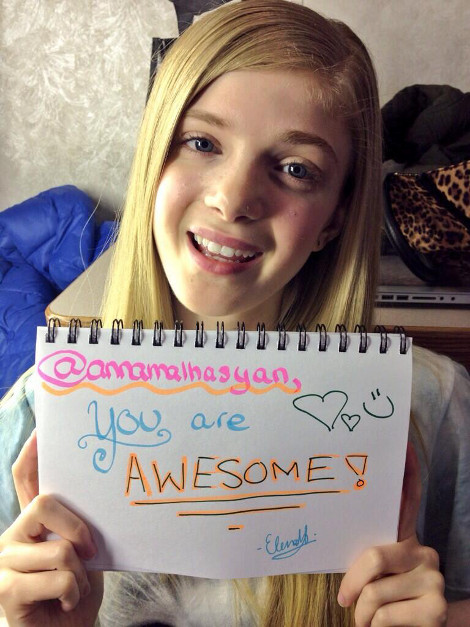 @annamalhasyan,
You are
AWESOME!